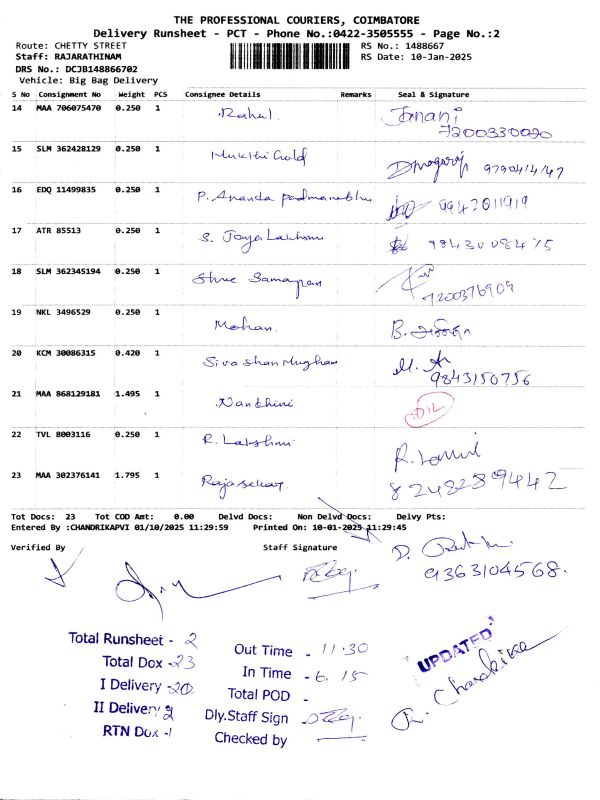 THE PROFESSIONAL COURIERS, COIMBATORE
Delivery Runsheet - PCT - Phone No.:0422-3505555 - Page No.:2
Route: CHETTY STREET
RS No.: 1488667
Staff: RAJARATHINAM
RS Date: 10-Jan-2025
DRS No.: DCJB148866702
Vehicle: Big Bag Delivery
S No Consignment No Weight PCS Consignee Details Remarks Seal & Signature
14 MAA 706075470 0.250 1 Rahul. Janani
7200330090
15 SLM 362428129 0.250 1 Mukthi Gold 9790414147
16 EDQ 11499835 0.250 1 P. Ananda Padmanabhu 9942011919
17 ATR 85513 0.250 1 S. Jaya Lakshmi 9843008475
18 SLM 362345194 0.250 1 Shree Samayan
7200376909
19 NKL 3496529 0.250 1 Mohan. B.
20 KCM 30086315 0.420 1 Siva Shan Mugham M.
9843150756
21 MAA 868129181 1.495 1 Nandhini D/L
22 TVL 8003116 0.250 1 R. Lakshmi
23 MAA 302376141 1.795 1 Rajasekar.
8248289442
Tot Docs: 23 Tot COD Amt: 0.00 Delvd Docs: Non Delvd Docs: Delvy Pts:
Entered By :CHANDRIKAPVI 01/10/2025 11:29:59 Printed On: 10-01-2025 11:29:45
Verified By Staff Signature D.
9363104568.
Total Runsheet - 2
Total Dox - 23
I Delivery - 20
II Delivery 2
RTN Dox - 1
Out Time - 11.30
In Time - 6.15
Total POD -
Dly.Staff Sign -
Checked by
UPDATED